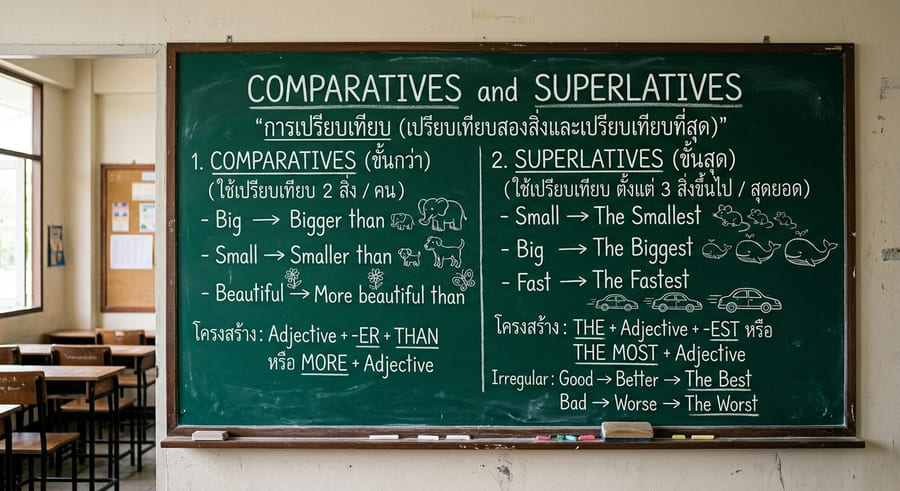 COMPARATIVES and SUPERLATIVES
“การเปรียบเทียบ (เปรียบเทียบสองสิ่งและเปรียบเทียบที่สุด)”
1. COMPARATIVES (ขั้นกว่า)
(ใช้เปรียบเทียบ 2 สิ่ง / คน)
- Big → Bigger than
- Small → Smaller than
- Beautiful → More beautiful than
โครงสร้าง : Adjective + -ER + THAN
หรือ MORE + Adjective
2. SUPERLATIVES (ขั้นสุด)
(ใช้เปรียบเทียบ ตั้งแต่ 3 สิ่งขึ้นไป / สุดยอด)
- Small → The Smallest
- Big → The Biggest
- Fast → The Fastest
โครงสร้าง : THE + Adjective + -EST หรือ
THE MOST + Adjective
Irregular : Good → Better → The Best
Bad → Worse → The Worst